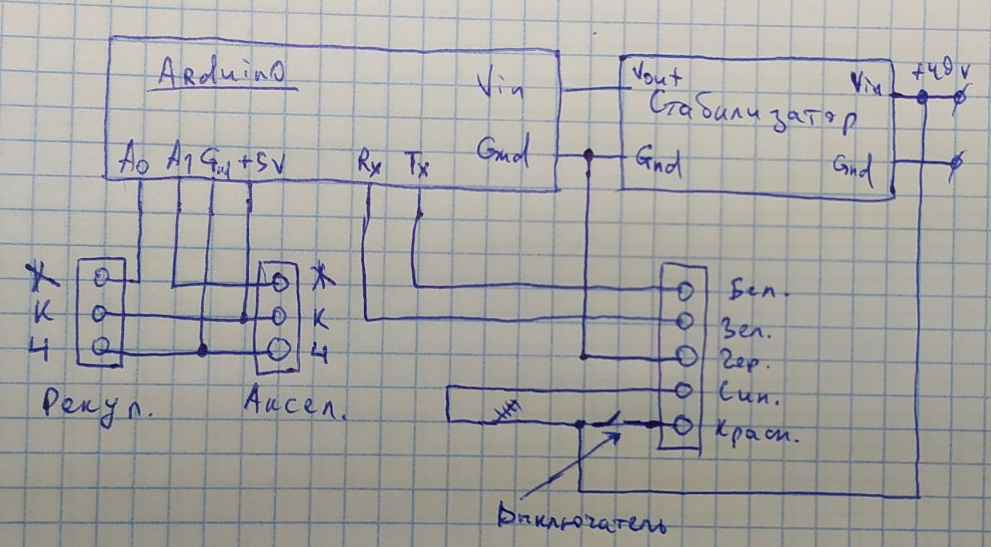 Arduino
Vin
Gnd
A0 A1 Gnd +5V Rx Tx
Vout
Vin
Стабилизатор
Gnd
Gnd
+49V
Ж
К
Ч
Рекуп.
Ж
К
Ч
Аксел.
Бел.
Зел.
Чер.
Син.
Красн.
Выключатель